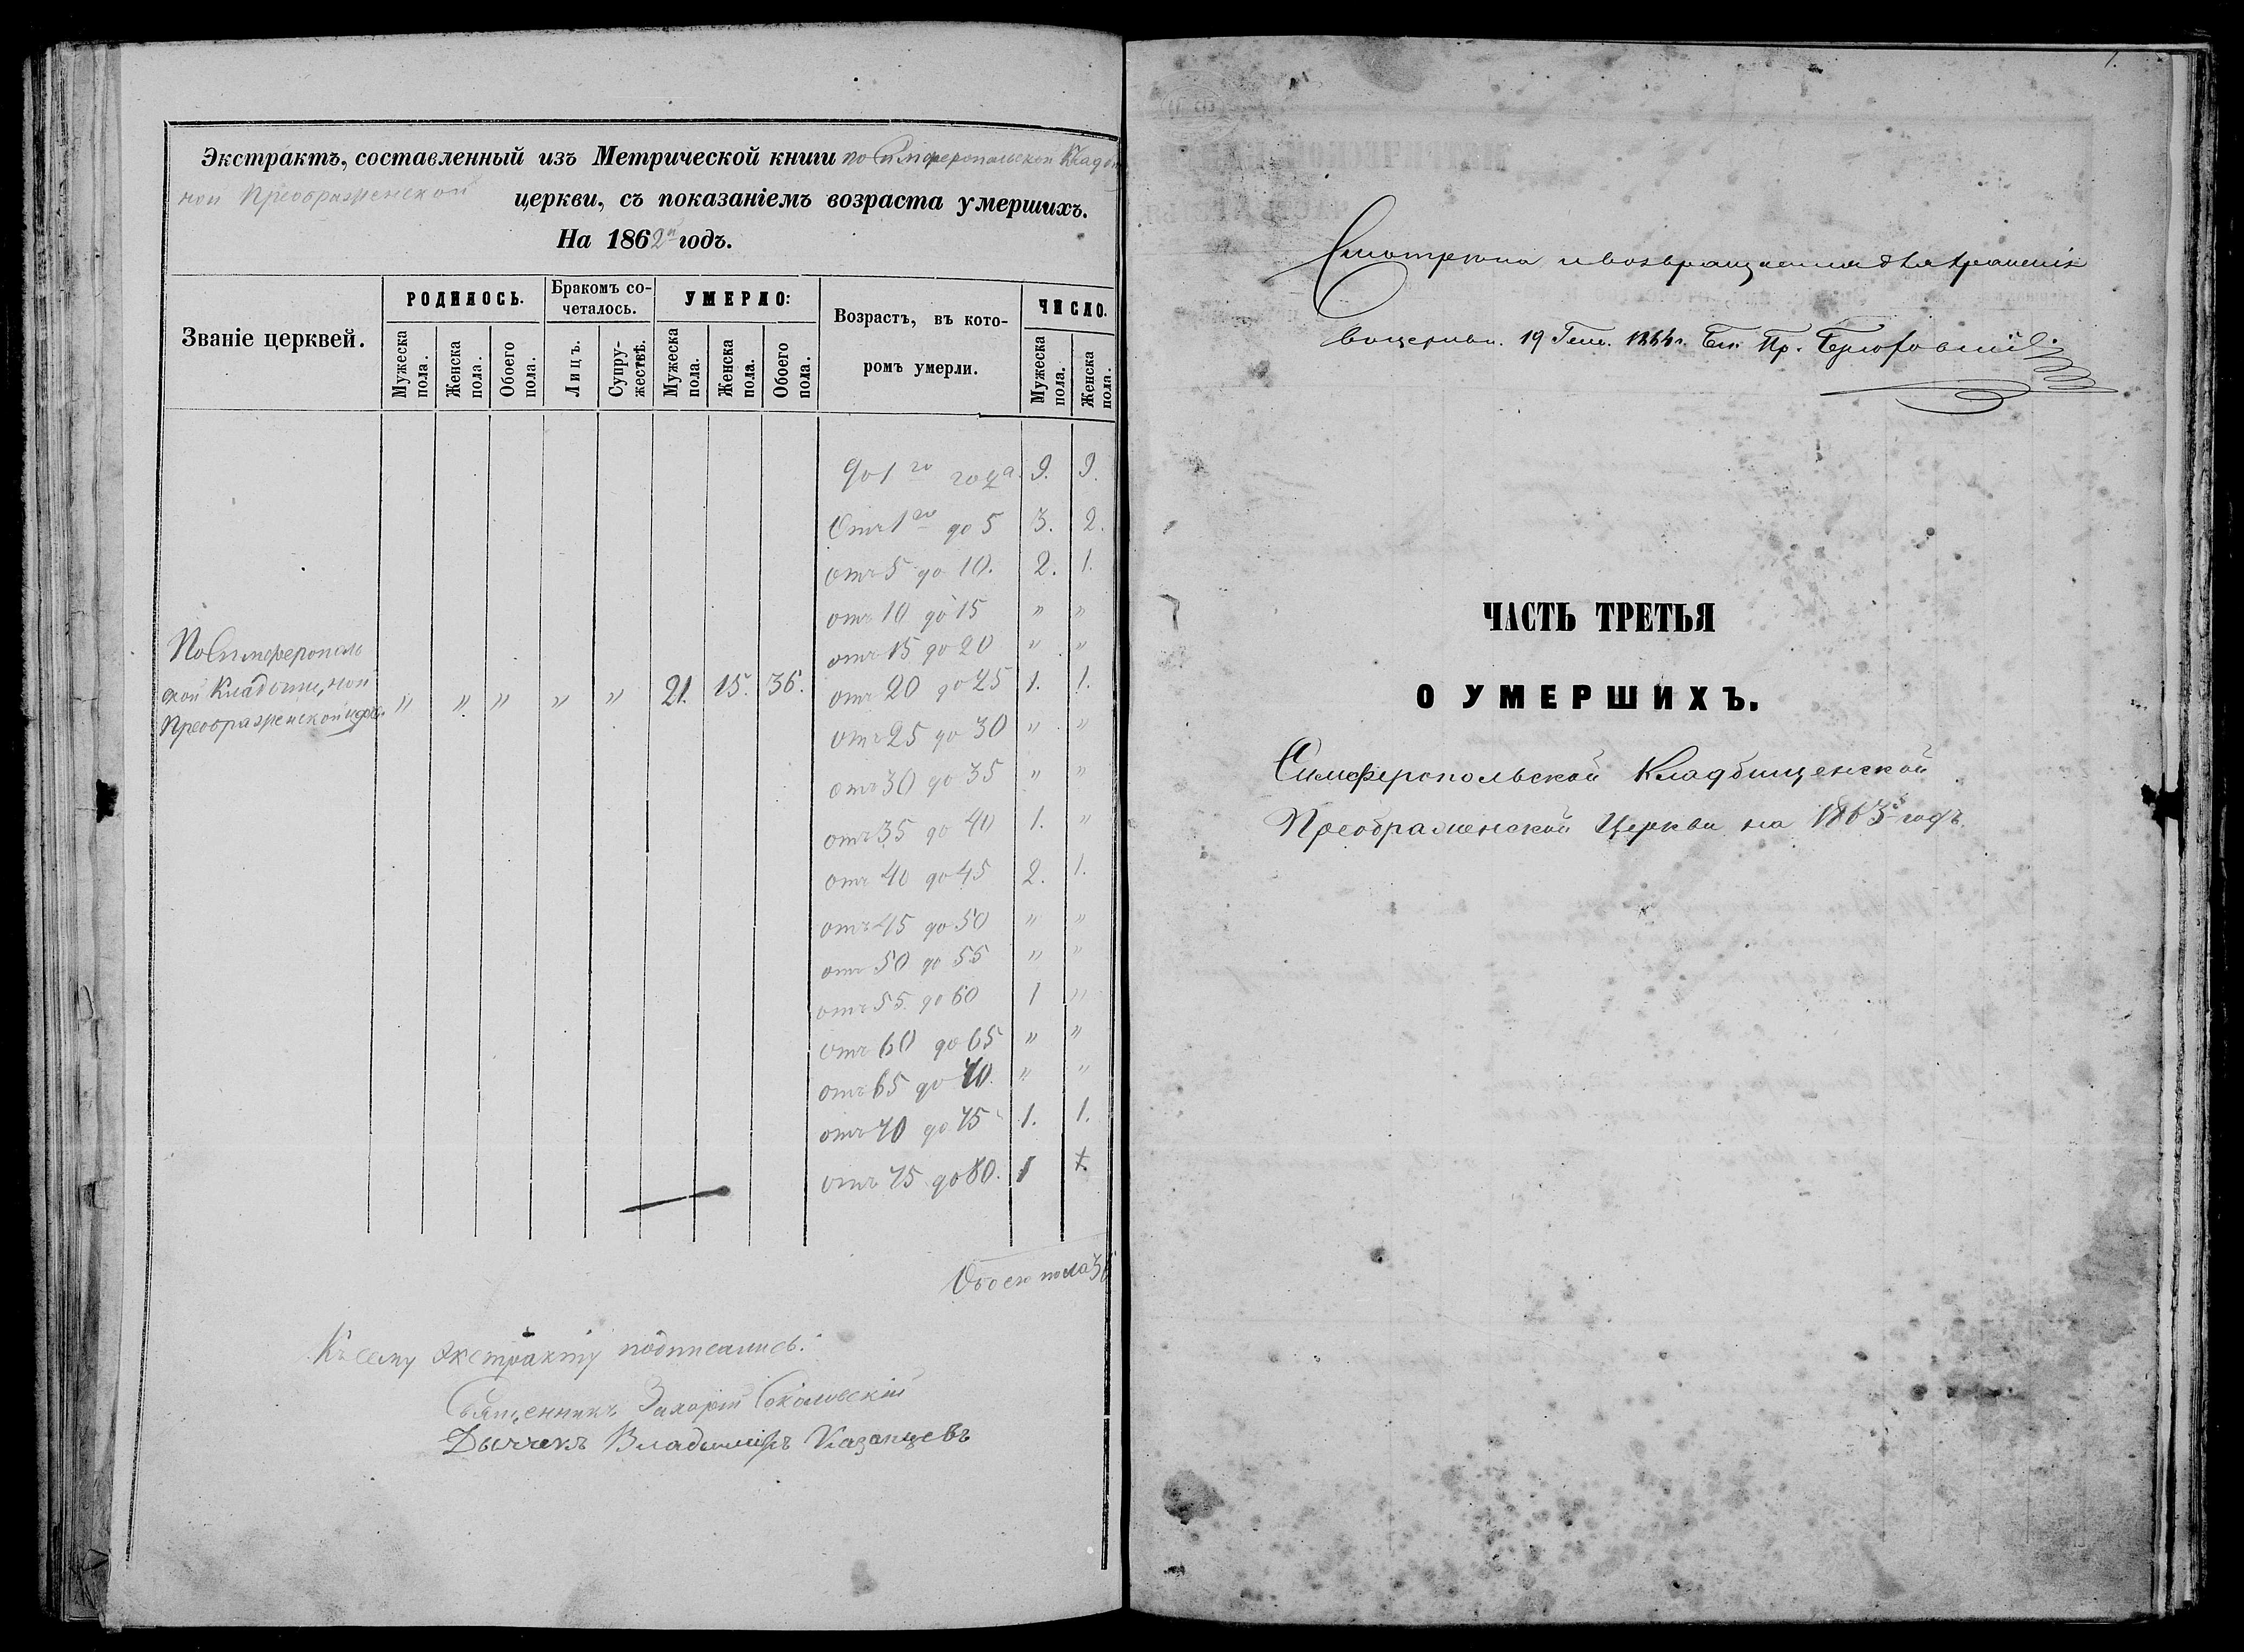 Экстрактъ, составленный изъ Метрической книги по Симферопольской Кладби
ной Преображенской церкви, съ показаніемъ возраста умершихъ.
На 1862й годъ.
Званіе церквей. РОДИЛОСЬ. Бракомъ со-четалось. УМЕРЛО: Возрастъ, въ кото-ромъ умерли. ЧИСЛО.
Мужеска пола. Женска пола. Обоего пола. Лицъ. Супру-жествъ. Мужеска пола. Женска пола. Обоего пола. Мужеска пола. Женска пола.
До 1го года. 9. 9.
Отъ 1го до 5 3. 2.
отъ 5 до 10. 2. 1.
отъ 10 до 15 " "
отъ 15 до 20 " "
По Симферополь
ской Кладбищ,ной
Преображенской церк. " " " " " 21. 15. 36.
отъ 20 до 25 1. 1.
отъ 25 до 30 " "
отъ 30 до 35 " "
отъ 35 до 40 1. "
отъ 40 до 45 2. 1.
отъ 45 до 50 " "
отъ 50 до 55 " "
отъ 55 до 60 1 "
отъ 60 до 65 " "
отъ 65 до 70. " "
отъ 70 до 75 1. 1.
отъ 75 до 80. 1
Обоего пола 36
Къ сему экстракту подписались:
Священникъ Захарій Соколовскій
Дьячекъ Владиміръ Казанцевъ
1.
Смотрена и возвращается для храненія
въ церкви. 19 Генв. 1864 г. Бл. Пр.
ЧАСТЬ ТРЕТЬЯ
О УМЕРШИХЪ.
Симферопольской Кладбищенской
Преображенской Церкви на 1863 годъ.